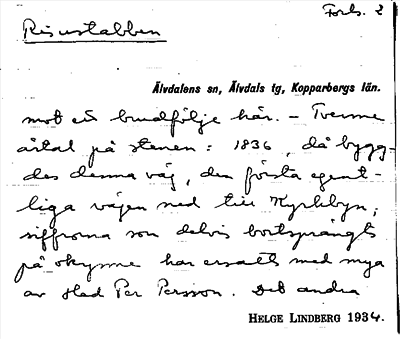 Forts. 2
Risustabben
Älvdalens sn, Älvdals tg, Kopparbergs län.
mot ett brudfölje här. – Tvenne
årtal på stenen: 1836, då bygg-
des denna väg, den första egent-
liga vägen ned till Kyrkbyn;
siffrorna som delvis bortsprängts
på skymme har ersatts med nya
av Hed Per Persson. Det andra
HELGE LINDBERG 1934.